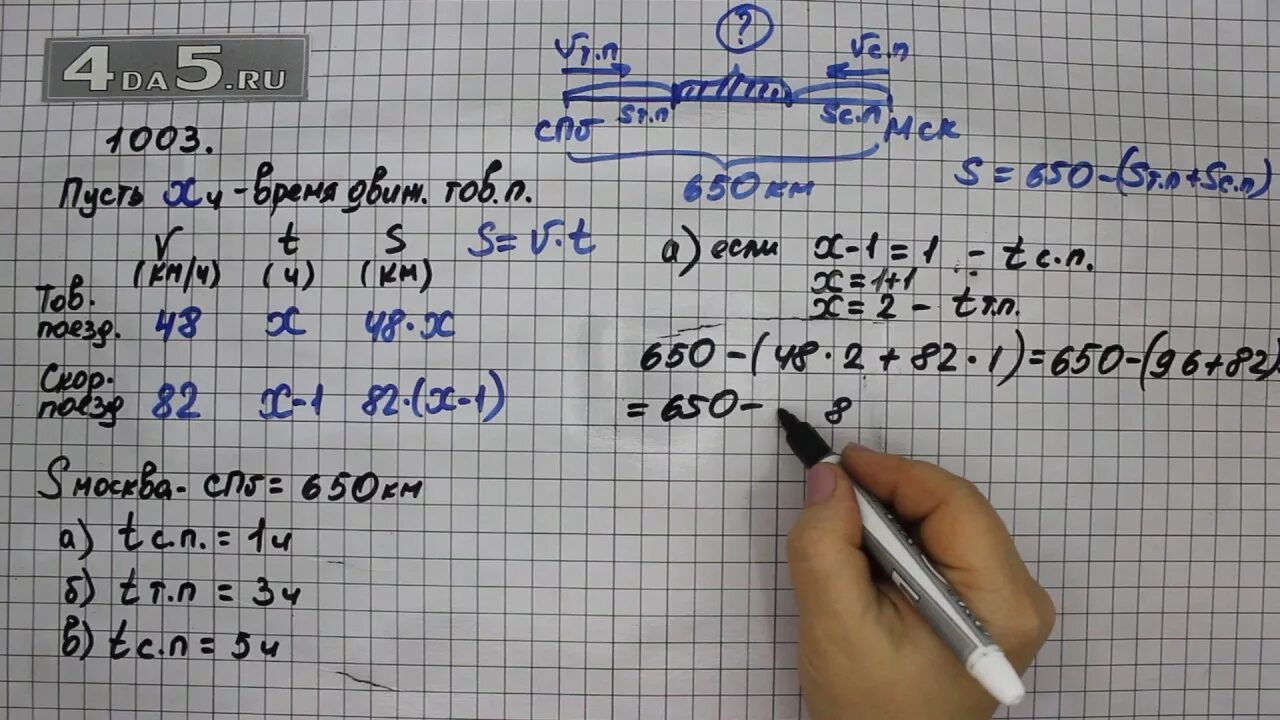 4DA5.RU
1003.
Пусть x ч - время движ. тов. п.
V t S S = V · t
(км/ч) (ч) (км)
Тов. поезд. 48 x 48 · x
Скор. поезд 82 x-1 82·(x-1)
S москва - СПб = 650 км
а) t с.п. = 1ч
б) t т.п = 3ч
в) t с.п = 5ч
?
Vт.п Vс.п
Sт.п Sс.п
СПб МСК
650 км
S = 650 - (Sт.п + Sс.п)
а) если x-1 = 1 - t с.п.
x = 1+1
x = 2 - t т.п.
650 - (48 · 2 + 82 · 1) = 650 - (96 + 82)
= 650 - 8